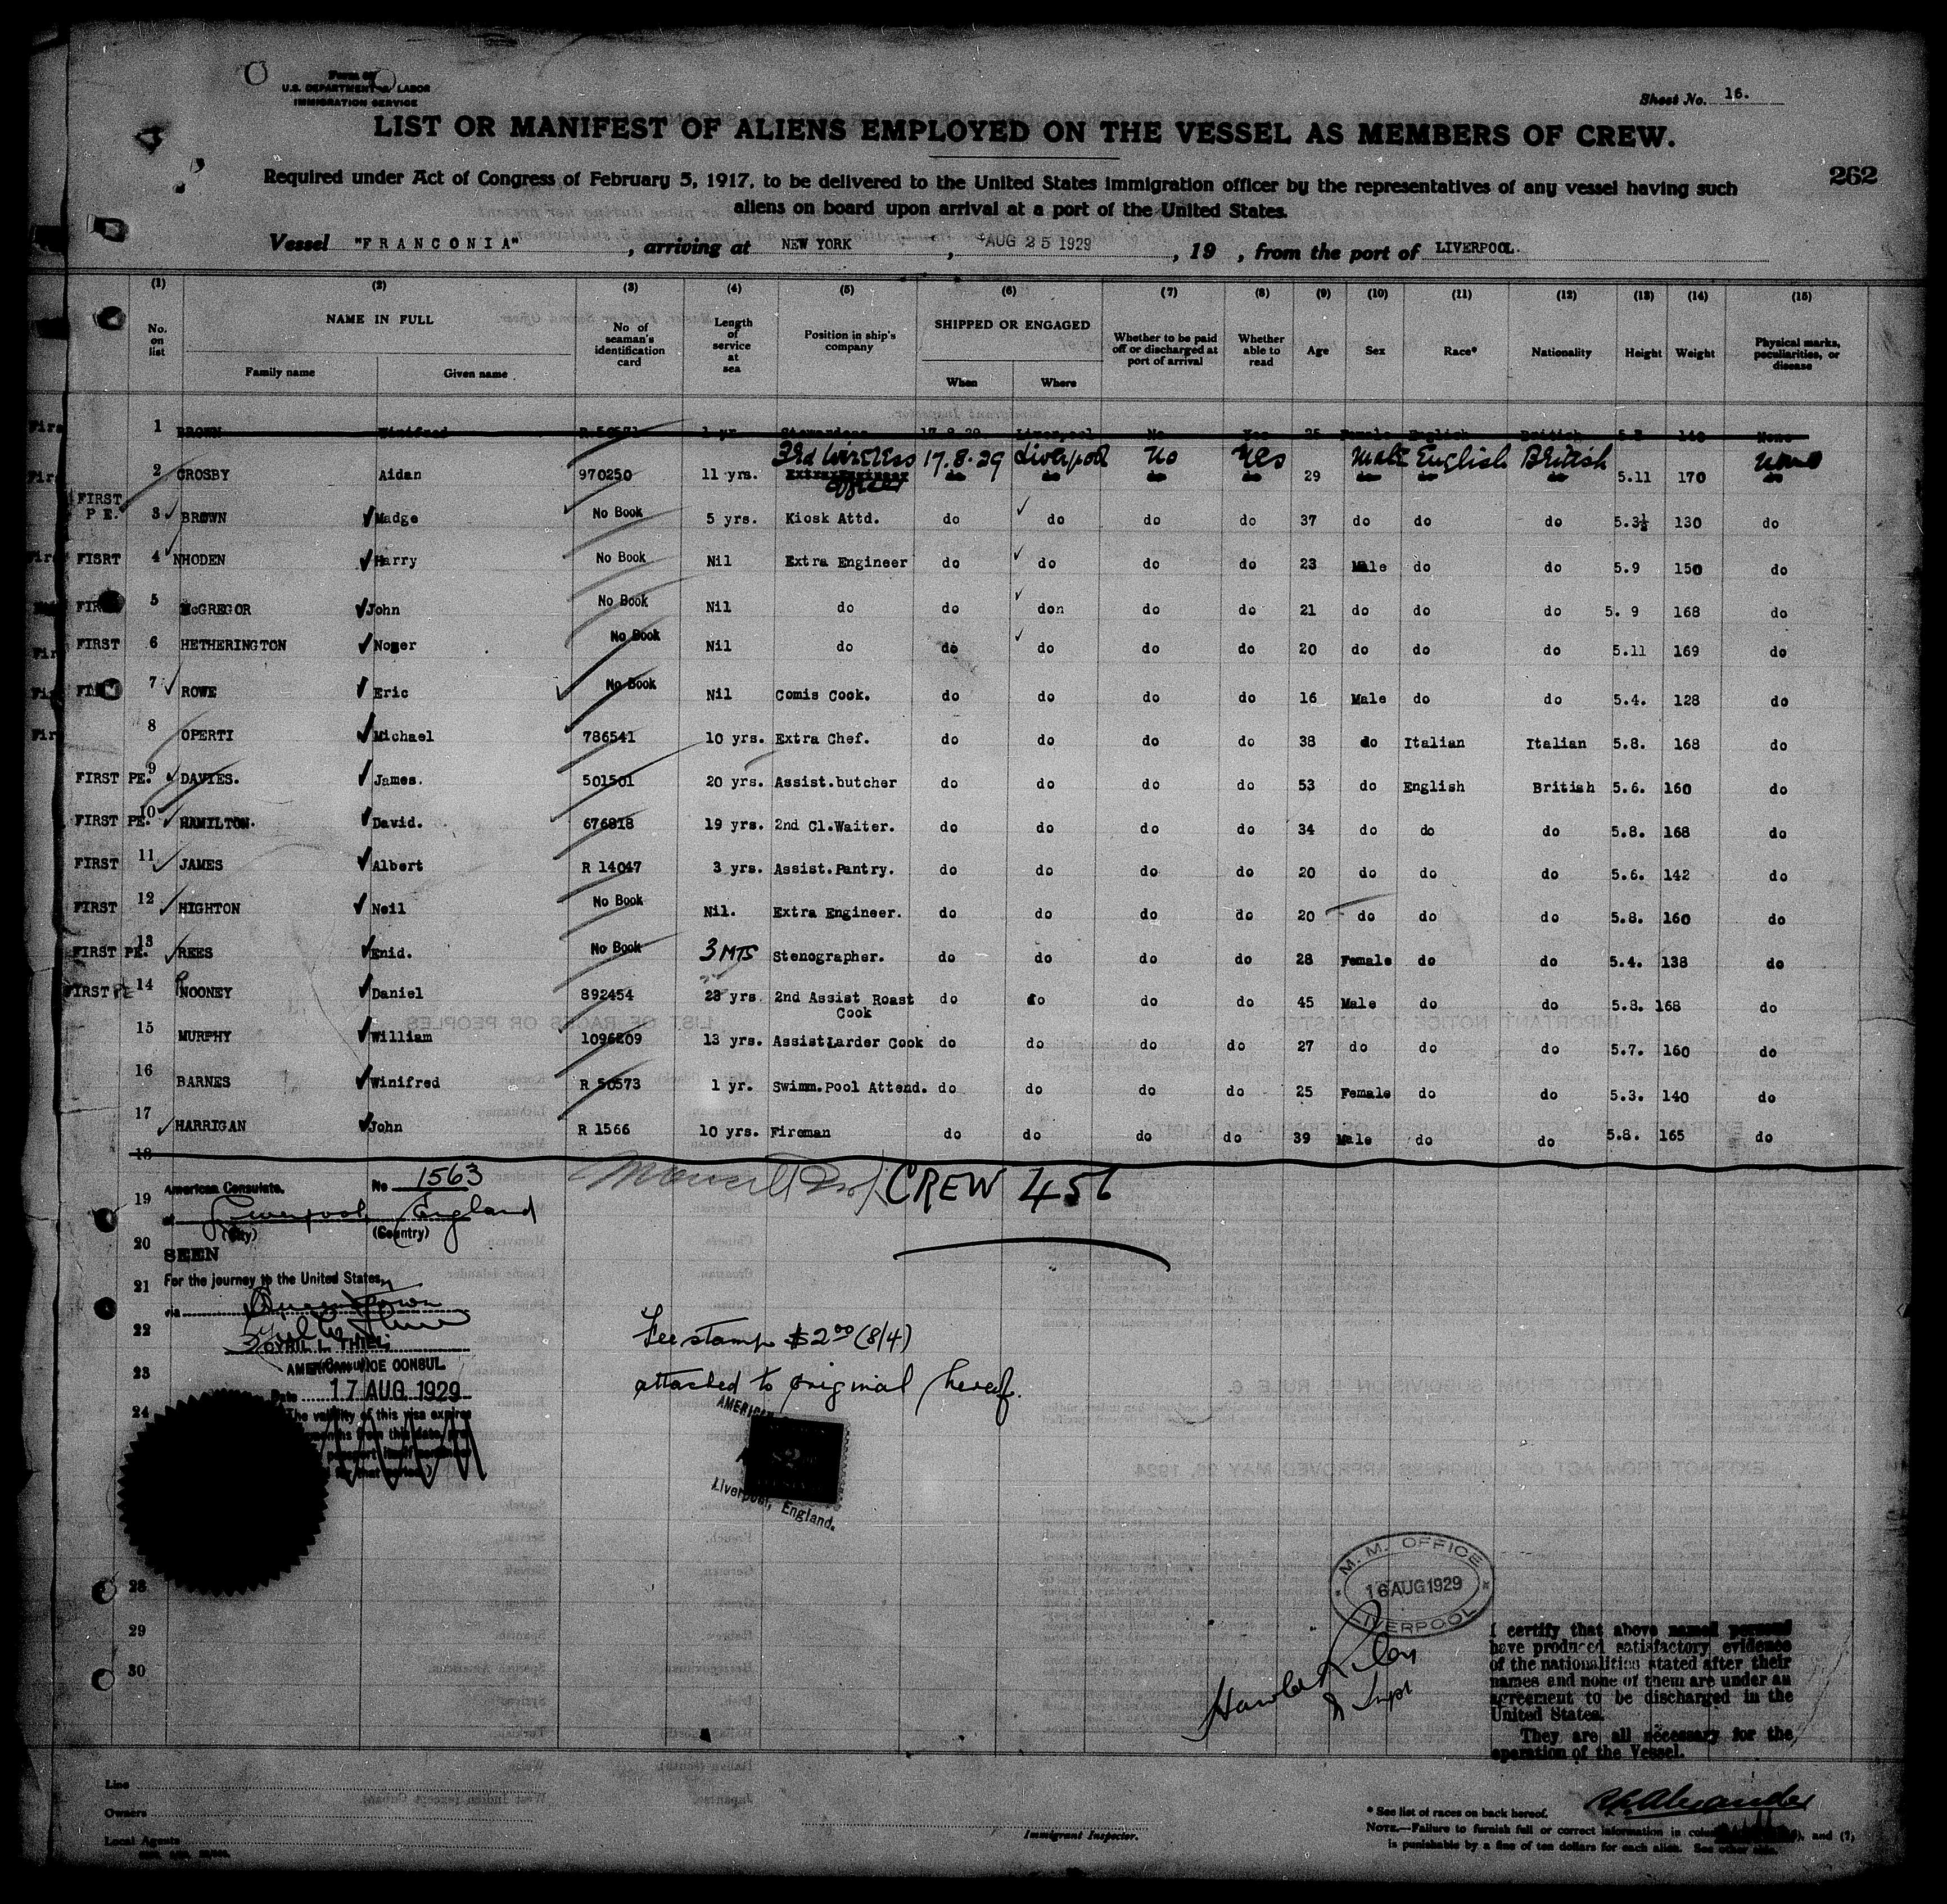 U.S. DEPARTMENT OF LABOR
IMMIGRATION SERVICE
Sheet No. 16.
LIST OR MANIFEST OF ALIENS EMPLOYED ON THE VESSEL AS MEMBERS OF CREW.
262
Required under Act of Congress of February 5, 1917, to be delivered to the United States immigration officer by the representatives of any vessel having such
aliens on board upon arrival at a port of the United States.
Vessel "FRANCONIA", arriving at NEW YORK, AUG 25 1929, 19 , from the port of LIVERPOOL.
(1) (2) (3) (4) (5) (6) (7) (8) (9) (10) (11) (12) (13) (14) (15)
No. on list NAME IN FULL Family name Given name No. of seaman's identification card Length of service at sea Position in ship's company SHIPPED OR ENGAGED When Where Whether to be paid off or discharged at port of arrival Whether able to read Age Sex Race* Nationality Height Weight Physical marks, peculiarities, or disease
1 BROWN Winifred R 50571 1 yr. Stewardess 17.8.29 Liverpool No Yes 25 Female English British 5.3 140 None
3rd Wireless 17.8.29 Liverpool No Yes Male English British None
2 CROSBY Aidan 970250 11 yrs. officer do do do do 29 do do do 5.11 170 do
FIRST P E. 3 BROWN Madge No Book 5 yrs. Kiosk Attd. do do do do 37 do do do 5.3½ 130 do
FISRT 4 NHODEN Harry No Book Nil Extra Engineer do do do do 23 Male do do 5.9 150 do
FIRST 5 McGREGOR John No Book Nil do do don do do 21 do do do 5. 9 168 do
FIRST 6 HETHERINGTON Noger No Book Nil do do do do do 20 do do do 5.11 169 do
7 ROWE Eric No Book Nil Comis Cook. do do do do 16 Male do do 5.4. 128 do
8 OPERTI Michael 786541 10 yrs. Extra Chef. do do do do 38 do Italian Italian 5.8. 168 do
FIRST PE. 9 DAVIES. James. 501501 20 yrs. Assist.butcher do do do do 53 do English British 5.6. 160 do
FIRST PE. 10 HAMILTON. David. 676818 19 yrs. 2nd Cl.Waiter. do do do do 34 do do do 5.8. 168 do
FIRST 11 JAMES Albert R 14047 3 yrs. Assist.Pantry. do do do do 20 do do do 5.6. 142 do
FIRST 12 HIGHTON Neil No Book Nil. Extra Engineer. do do do do 20 do do do 5.8. 160 do
FIRST PE. 13 REES Enid. No Book 3 MTS Stenographer. do do do do 28 Female do do 5.4. 138 do
FIRST PE 14 NOONEY Daniel 892454 28 yrs. 2nd Assist Roast Cook do do do do 45 Male do do 5.8. 168 do
15 MURPHY William 1096209 13 yrs. Assist Larder Cook do do do do 27 do do do 5.7. 160 do
16 BARNES Winifred R 50573 1 yr. Swimm.Pool Attend. do do do do 25 Female do do 5.3. 140 do
17 HARRIGAN John R 1566 10 yrs. Fireman do do do do 39 Male do do 5.8. 165 do
18
American Consulate. No 1563
CREW 456
19
at Liverpool, England
(City) (Country)
20
SEEN
21
For the journey to the United States,
via Queenstown
22
CYRIL L. THIEL,
AMERICAN VICE CONSUL
23
Date 17 AUG 1929
24
The validity of this visa expires
months from this date,
Fee stamp $2.00 (8/4)
attached to original hereof.
AMERICAN
Liverpool, England.
28
29
30
M. M. OFFICE
16 AUG 1929
LIVERPOOL
I certify that above named persons
have produced satisfactory evidence
of the nationalities stated after their
names and none of them are under an
agreement to be discharged in the
United States.
They are all necessary for the
operation of the Vessel.
Line
Owners
Local Agents
Immigrant Inspector.
* See list of races on back hereof.
NOTE.—Failure to furnish full or correct information in
is punishable by a fine of ten dollars for each alien. See other side.